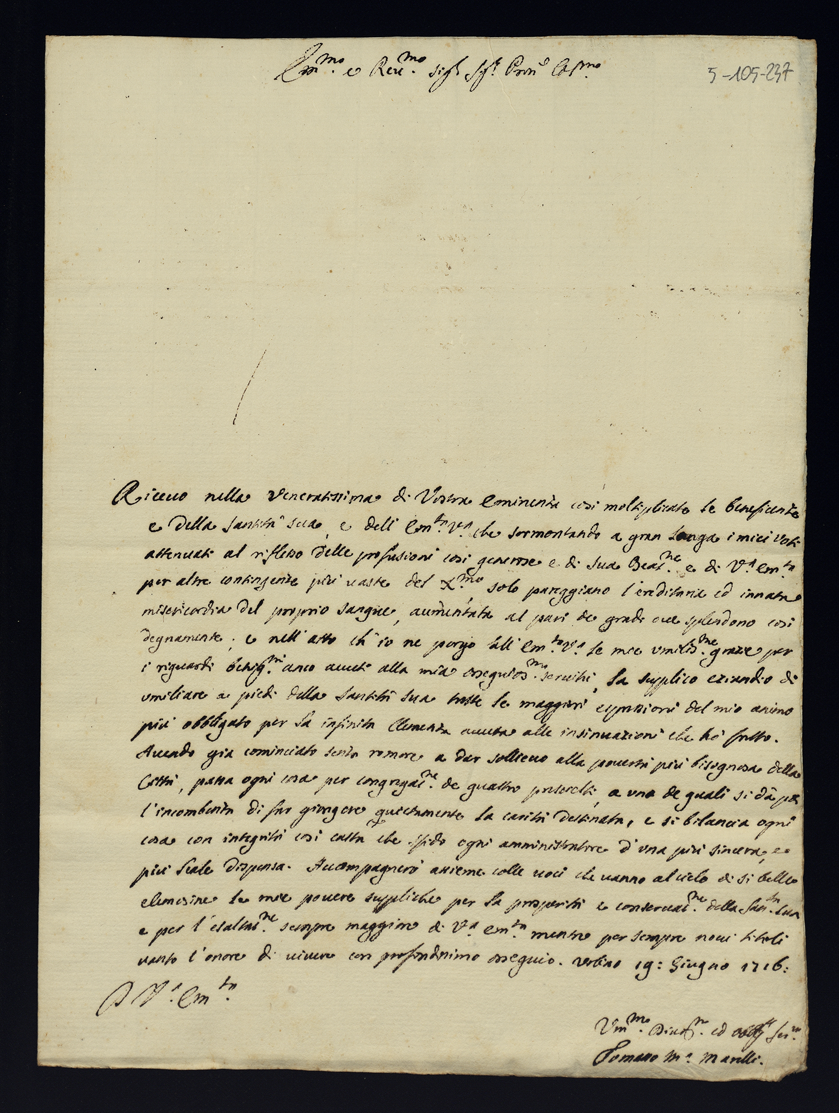 Em.mo e Rev.mo Sig.r Sig.r Pron.e Col.mo
5-105-237
Riceuo nella Veneratissima di Vostra Eminenza così moltiplicate le beneficenze
e della Santità sua, e dell'Em.za V.a che sormontando a gran lunga i miei voti
attenuati al riflesso delle profusioni così generose e di sua Beat.ne e di V.a Em.za
per altre contingenze più uaste del X.mo solo pareggiano l'ereditaria ed innata
misericordia del proprio sangue, aumentata al pari de gradi oue splendono così
degnamente; e nell'atto ch'io ne porgo all'Em.za V.a le mie umiliss.me grazie per
i riguardi benig.mi anco auuti alla mia ossequios.ma seruitù, la supplico eziandio di
umiliare a piedi della Santità sua tutte le maggiori espressioni del mio animo
più obbligato per la infinita Clemenza auuta alle insinuazioni che hò fatto.
Auendo già cominciato senza romore a dar sollieuo alla pouertà più bisognosa della
Città, passa ogni cosa per congregaz.ne de quattro Presorelli, a uno de quali si dà poi
l'incombenza di far giongere quietamente la carità destinata, e si bilancia ogni
cosa con integrità così casta che sfido ogni amministratore d'una più sincera, e
più leale dispensa. Accompagnerò assieme colle uoci che uanno al cielo di sì belle
elemosine le mie pouere suppliche per la prosperità e conseruaz.ne della San.tà Sua
e per l'esaltaz.ne sempre maggiore di V.a Em.za mentre per sempre noui titoli
uanto l'onore di uiuere con profondissimo ossequio. Urbino 19: Giugno 1716:
D V.a Em.za
Um.mo Diuot.mo ed Obb.mo Ser.re
Tomaso M.a Marelli.